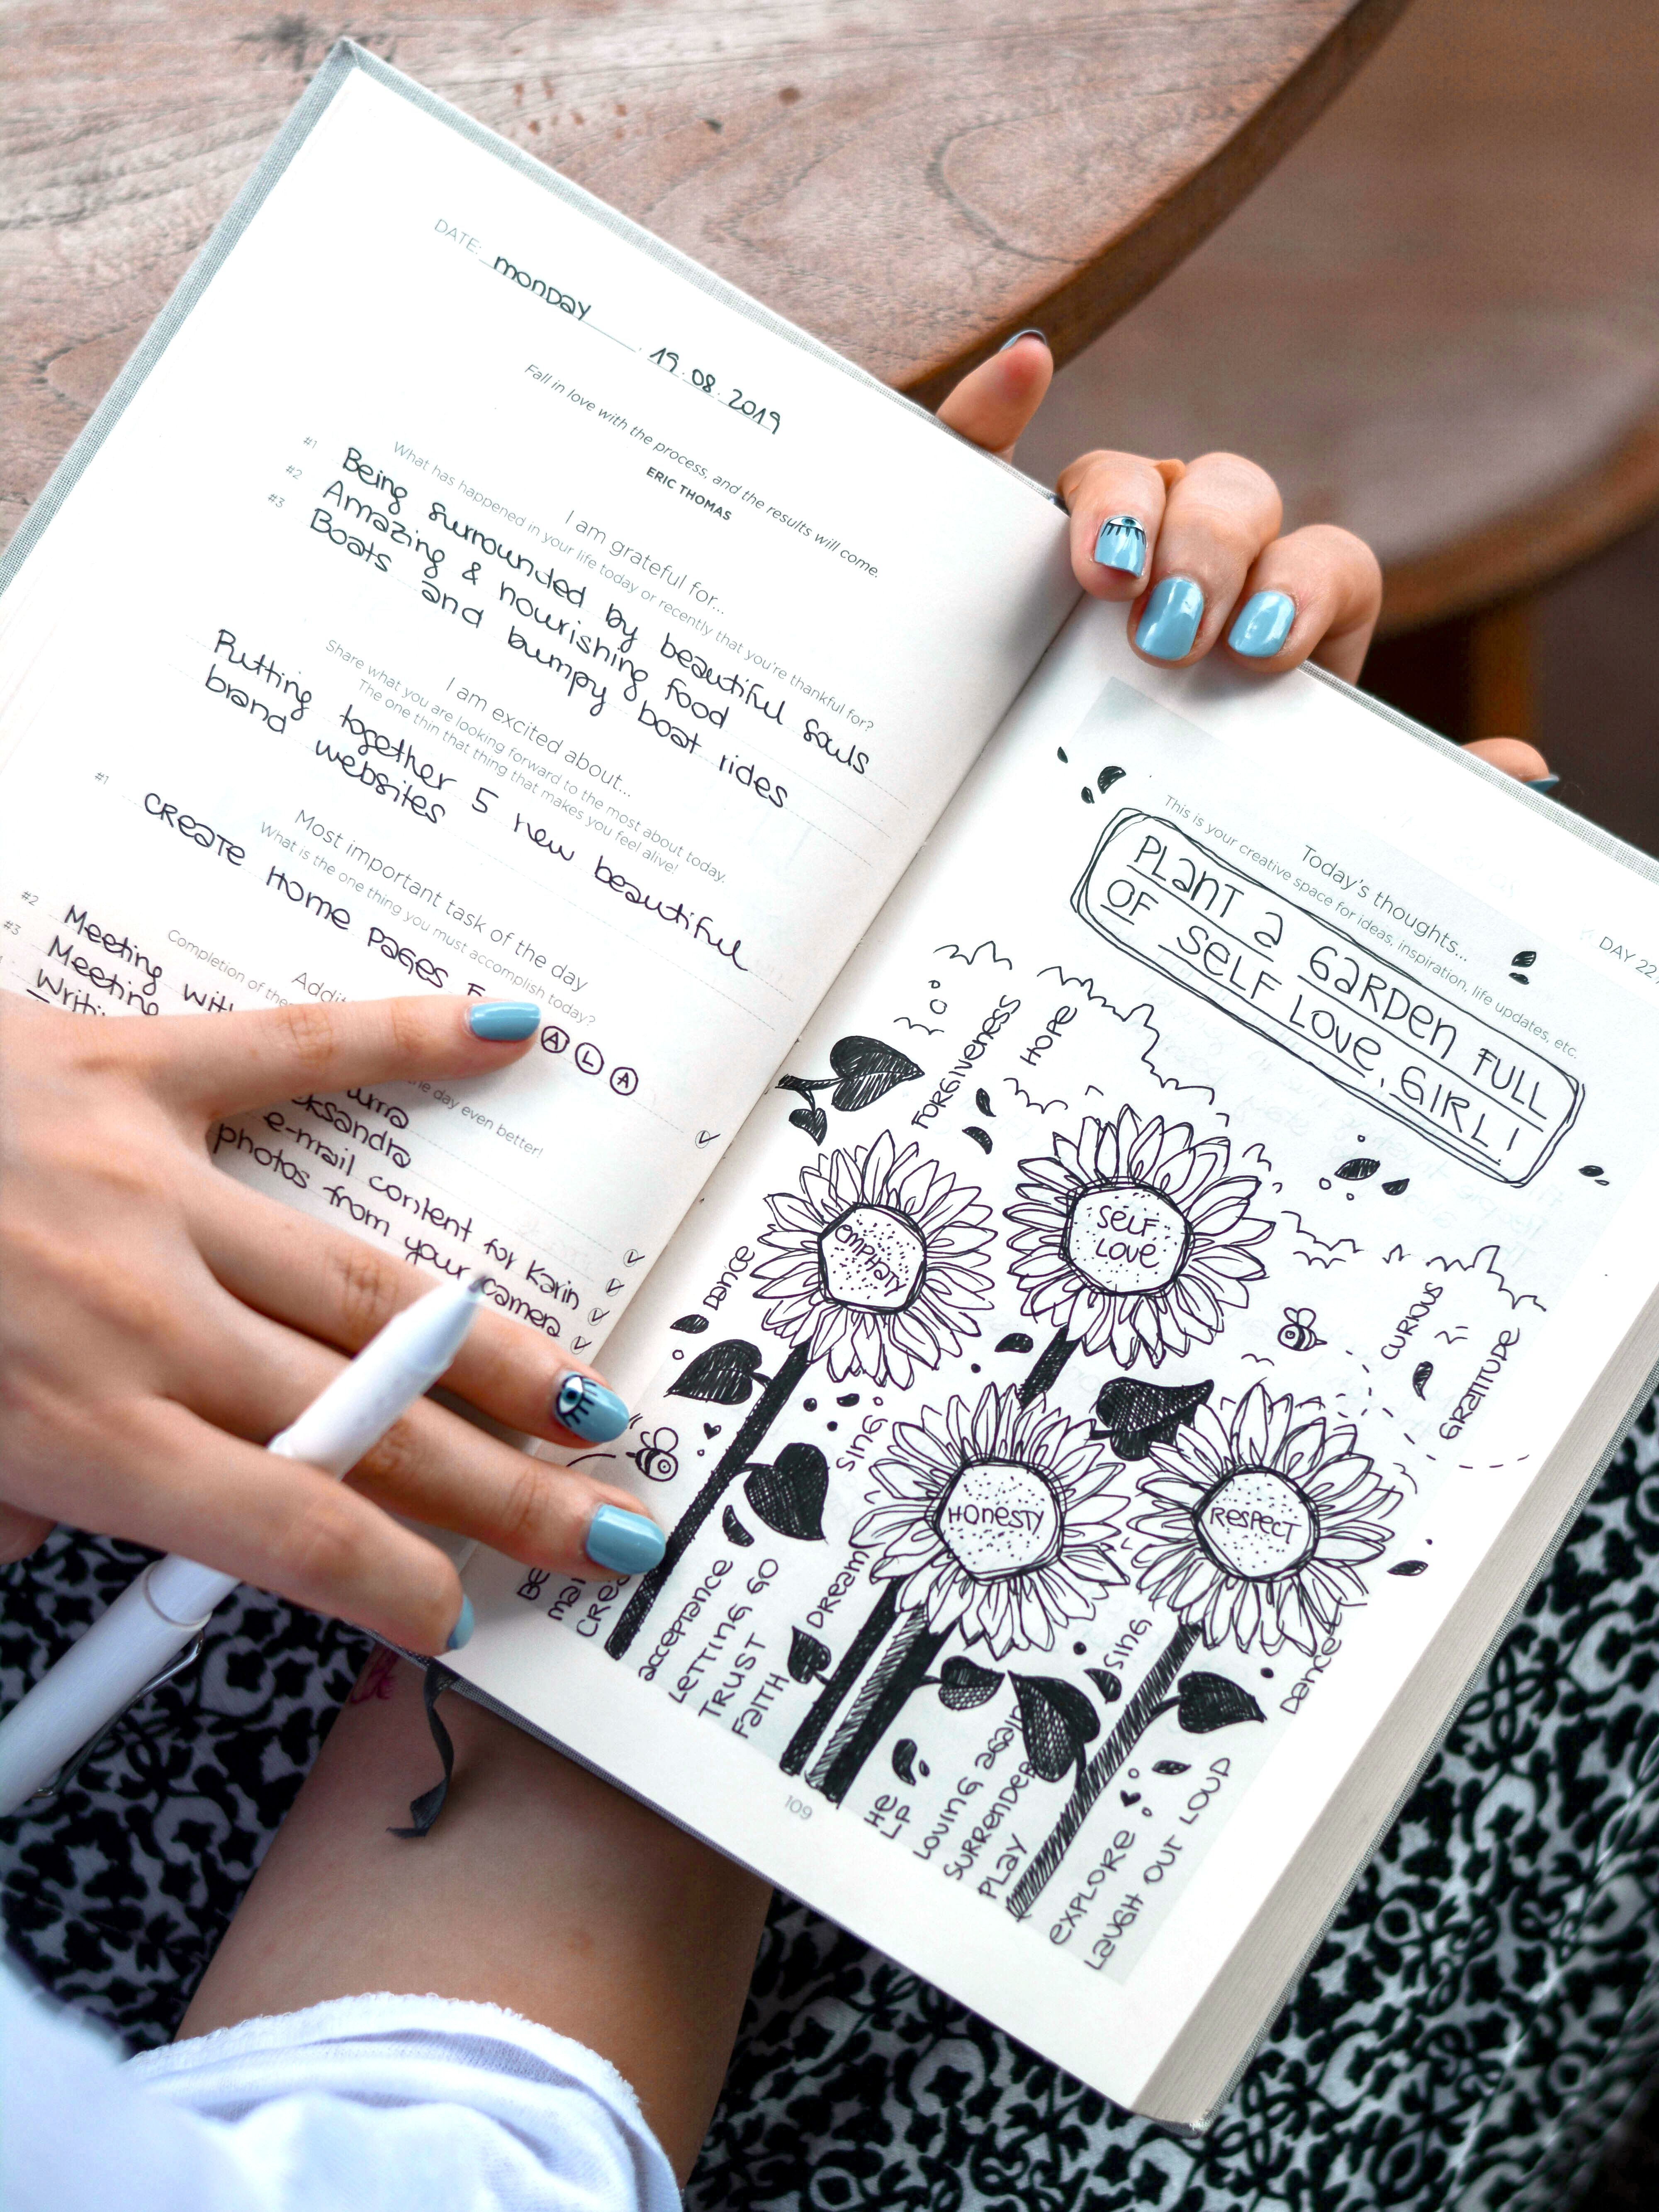 DATE: monday 19.08.2019
Fall in love with the process, and the results will come.
ERIC THOMAS
I am grateful for...
What has happened in your life today or recently that you're thankful for?
#1 Being surrounded by beautiful souls
#2 Amazing & nourishing food
#3 Boats and bumpy boat rides
I am excited about...
Share what you are looking forward to the most about today.
The one thin that thing that makes you feel alive!
Putting together 5 new beautiful
brand websites
Most important task of the day
What is the one thing you must accomplish today?
#1 CREATE HOME PAGES F
A L A
Completion of the
the day even better!
#2 Meeting
#3 Meeting
e-mail content for Karin
photos from your camera
DAY 22
Today's thoughts...
This is your creative space for ideas, inspiration, life updates, etc.
PLANT A GARDEN FULL
OF SELF LOVE, GIRL!
FORGIVENESS
HOPE
EMPHATY
SELF
LOVE
HONESTY
RESPECT
CURIOUS
GRATITUDE
DANCE
SING
DREAM
ACCEPTANCE
LETTING GO
TRUST
FAITH
SING
DANCE
HE
LP
LOVING AGAIN
SURRENDER
PLAY
EXPLORE
LAUGH OUT LOUD
109